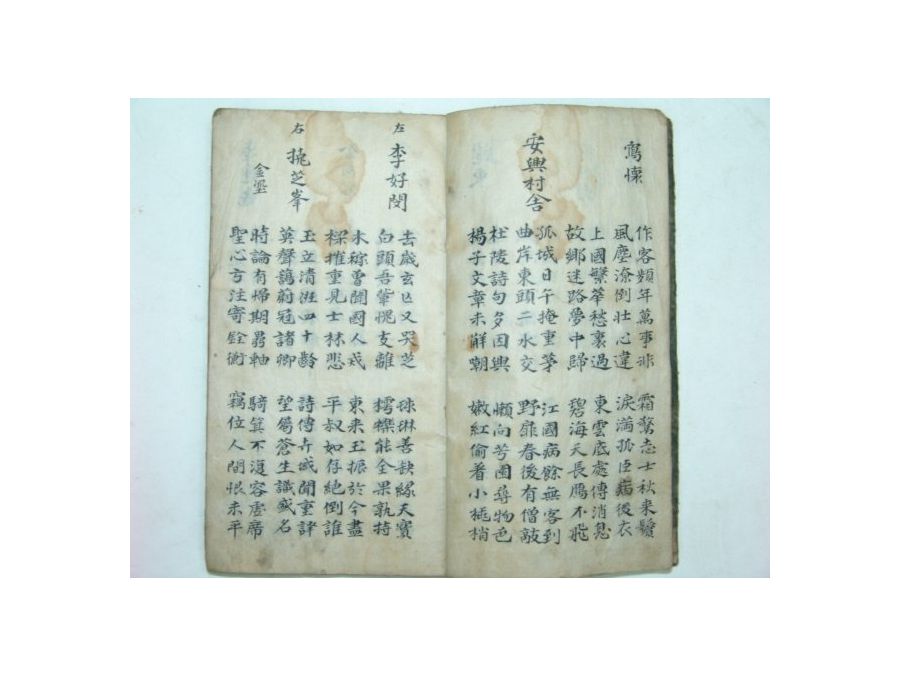 寫懷
作客頻年萬事非 霜驚志士秋來鬢
風塵潦倒壯心違 淚滿孤臣病後衣
上國繁華愁裏過 東雲底處傳消息
故鄉迷路夢中歸 碧海天長鴈不飛
安興村舍
孤城日午掩重茅 江國病餘無客到
曲岸東頭二水交 野扉春後有僧敲
杜陵詩句多因興 懶向芳園尋物色
楊子文章未解嘲 嫩紅偷着小桃梢
左 李好閔
去歲玄 又哭芝 球琳善 緣天寶
白頭吾輩愧支離 樗櫟能全果孰持
木稼曾聞國人戒 東來玉振於今盡
樑摧重見士林悲 平叔如存絶倒誰
右 挽芝峯
金 
玉立清 四十齡 詩傳 域聞重譯
英聲藹蔚冠諸卿 望屬蒼生識盛名
時論有歸期 軸 騎箕不復容虛席
聖心方注寄銓衡 竊位人間恨未平